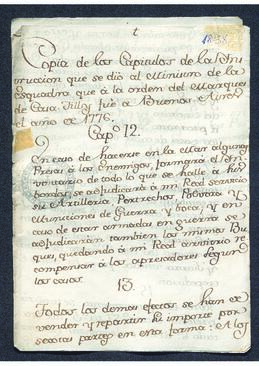 Copia de los Capitulos de la Ins
truccion que se dió al Ministro de la
Esquadra que á la orden del Marques
de Casa Tilly fué á Buenos Ayres
el año de 1776.
Capº 12.
En caso de hacerse en la Mar algunas
Presas á los Enemigos, formará el In
ventario de todo lo que se halle á su
bordo, se adjudicará á mi Real servicio
su Artilleria, Pertrechos, Polvora y
Municiones de Guerra, y boca; y en
caso de estar armadas en guerra se
adjudicarán tambien los mismos Bu
ques, quedando á mi Real arvitrio re
compensar á los apresadores segun
los casos.
13.
Todos los demas efectos se han de
vender y repartir su importe por
sextas partes en esta forma: A los